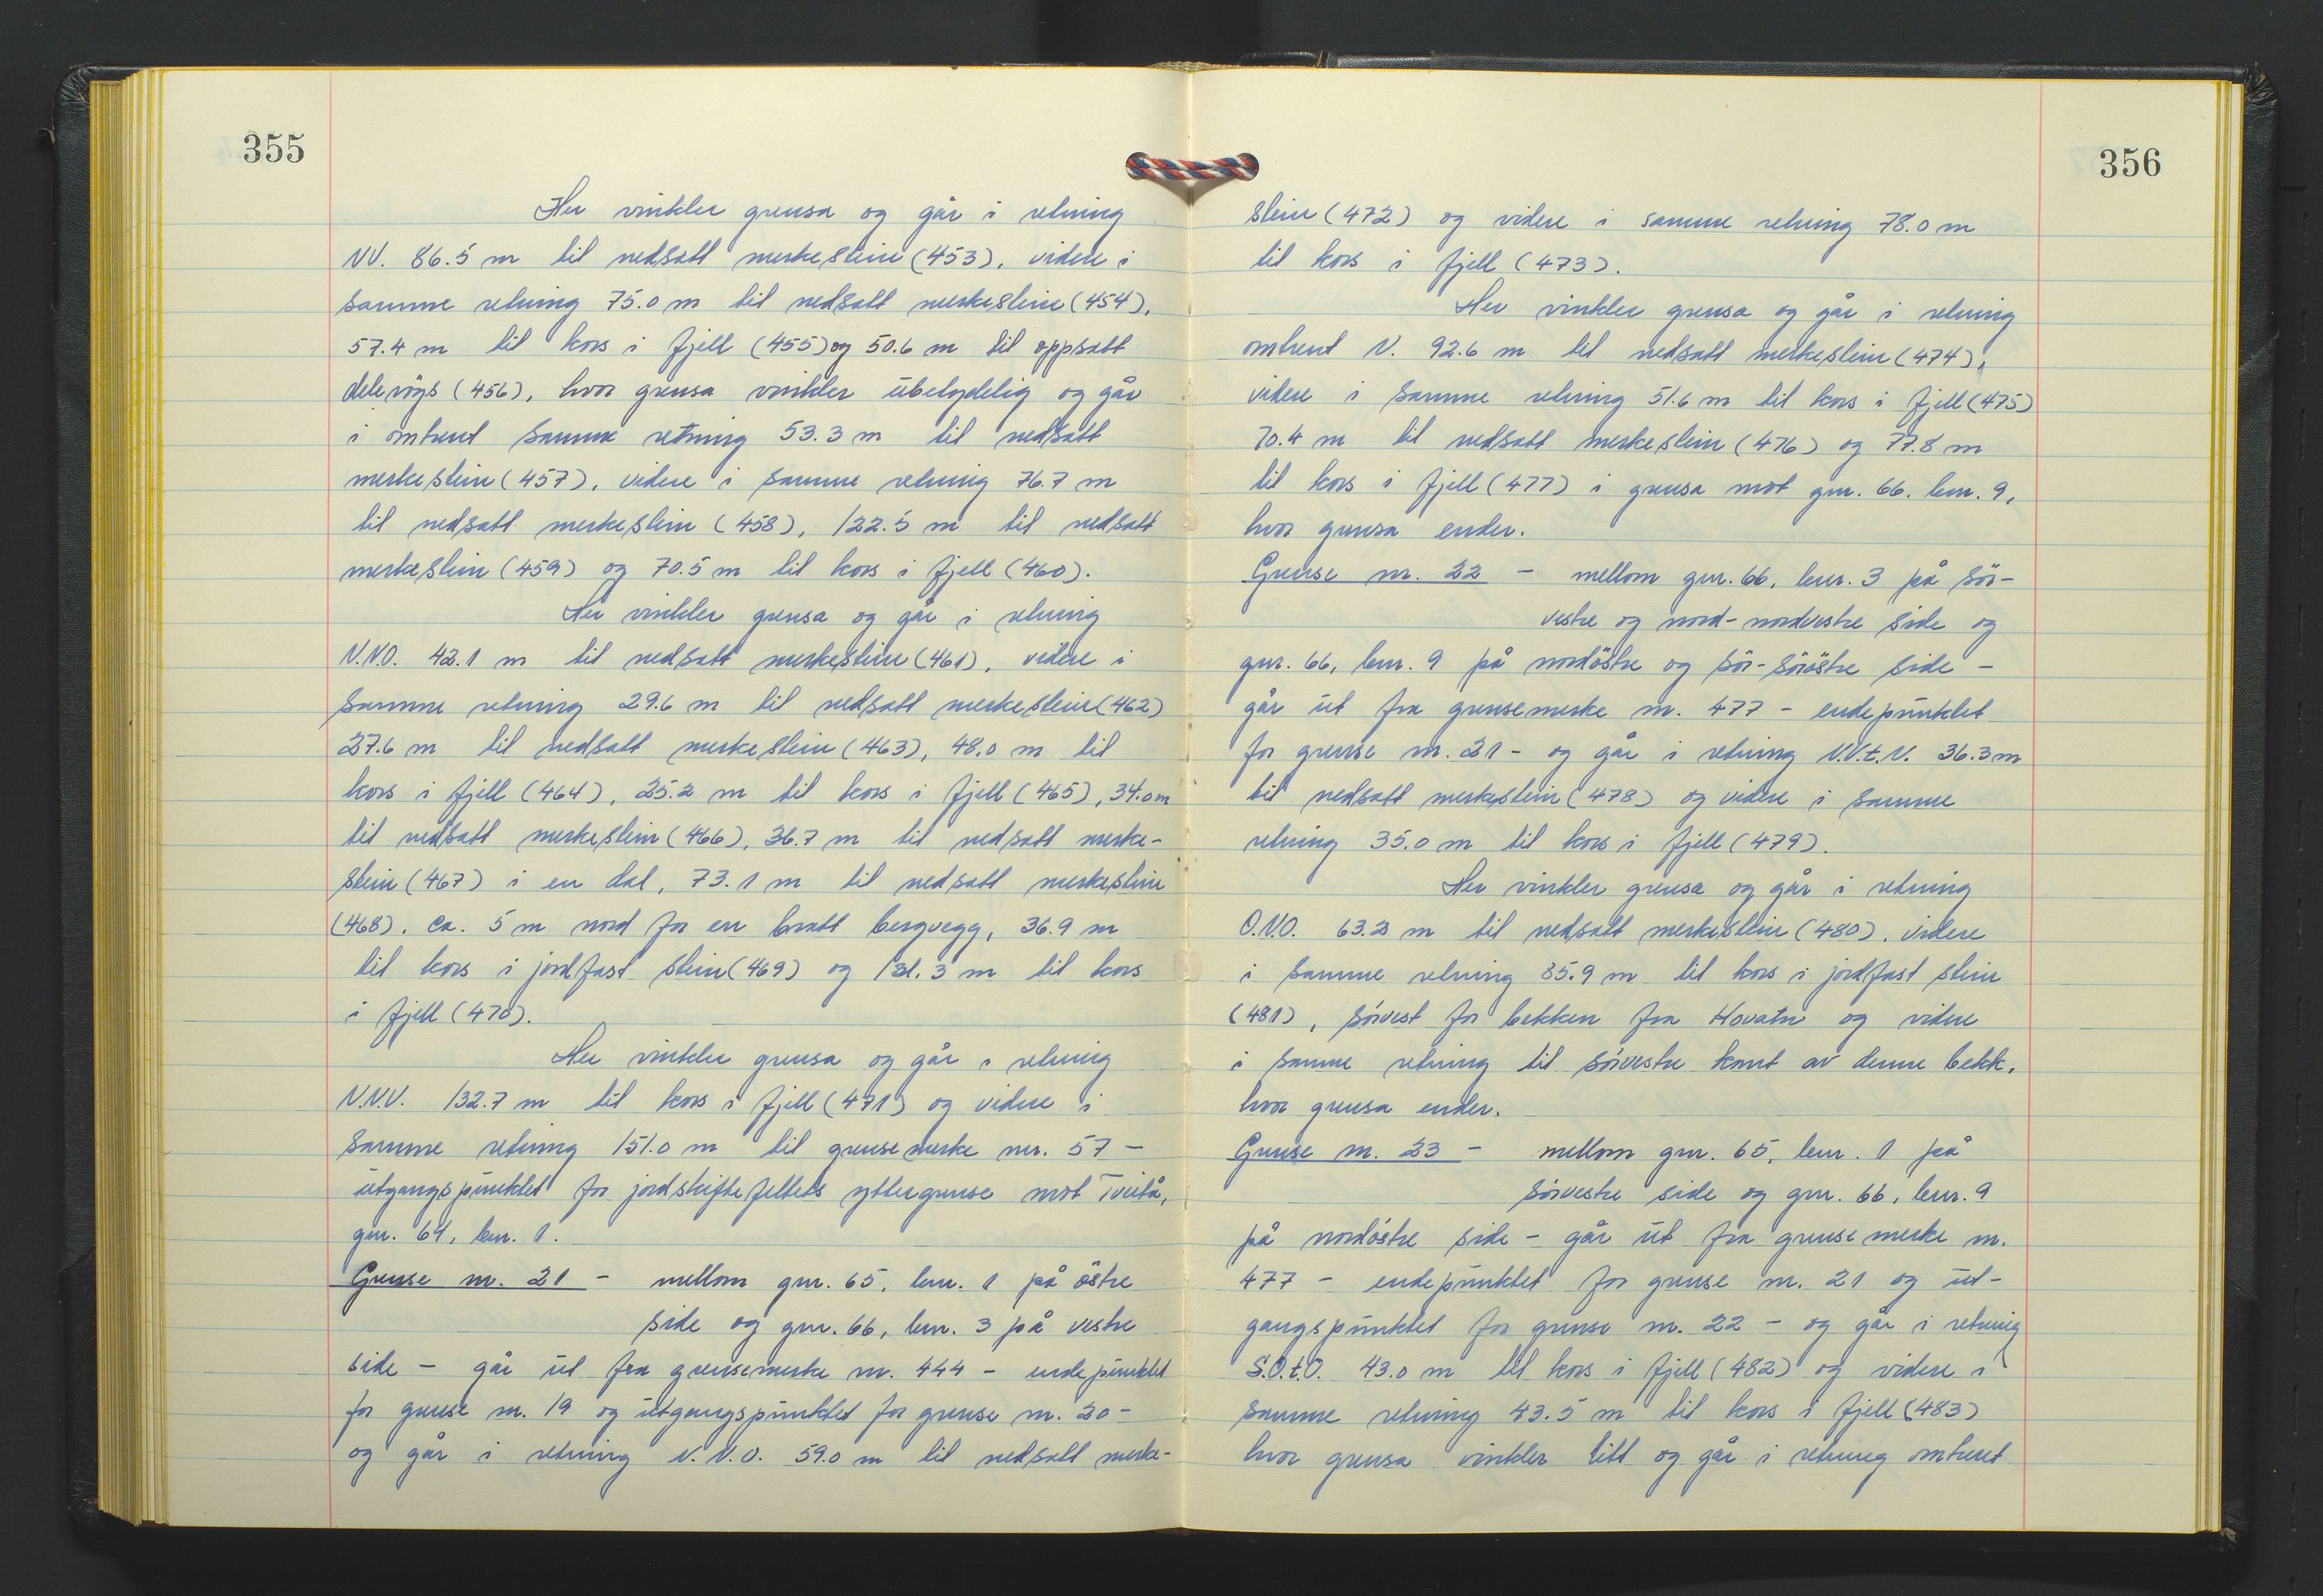 355
Her vinkler grensa og går i retning
NV. 86.5 m til nedsatt merkestein (453), videre i
samme retning 75.0 m til nedsatt merkestein (454),
57.4 m til kors i fjell (455) og 50.6 m til oppsatt
delerøys (456), hvor grensa vinkler ubetydelig og går
i omtrent samme retning 53.3 m til nedsatt
merkestein (457), videre i samme retning 76.7 m
til nedsatt merkestein (458), 122.5 m til nedsatt
merkestein (459) og 70.5 m til kors i fjell (460).
Her vinkler grensa og går i retning
N.N.O. 42.1 m til nedsatt merkestein (461), videre i
samme retning 29.6 m til nedsatt merkestein (462)
27.6 m til nedsatt merkestein (463), 48.0 m til
kors i fjell (464), 25.2 m til kors i fjell (465), 34.0 m
til nedsatt merkestein (466), 36.7 m til nedsatt merke-
stein (467) i en dal, 73.1 m til nedsatt merkestein
(468), ca. 5 m nord for en bratt bergvegg, 36.9 m
til kors i jordfast stein (469) og 131.3 m til kors
i fjell (470).
Her vinkler grensa og går i retning
N.N.V. 132.7 m til kors i fjell (471) og videre i
samme retning 151.0 m til grensemerke nr. 57 -
utgangspunktet for jordskiftefeltets yttergrense mot Tveitå,
gnr. 64, bnr. 1.
Grense nr. 21 - mellom gnr. 65, bnr. 1 på østre
side og gnr. 66, bnr. 3 på vestre
side - går ut fra grensemerke nr. 444 - endepunktet
for grense nr. 19 og utgangspunktet for grense nr. 20 -
og går i retning N.N.O. 59.0 m til nedsatt merke-
356
stein (472) og videre i samme retning 78.0 m
til kors i fjell (473).
Her vinkler grensa og går i retning
omtrent N. 92.6 m til nedsatt merkestein (474),
videre i samme retning 51.6 m til kors i fjell (475)
70.4 m til nedsatt merkestein (476) og 77.8 m
til kors i fjell (477) i grensa mot gnr. 66. bnr. 9,
hvor grensa ender.
Grense nr. 22 - mellom gnr. 66, bnr. 3 på sør-
vestre og nord-nordvestre side og
gnr. 66, bnr. 9 på nordøstre og sør-sørøstre side -
går ut fra grensemerke nr. 477 - endepunktet
for grense nr. 21 - og går i retning N.V.t.N. 36.3 m
til nedsatt merkestein (478) og videre i samme
retning 35.0 m til kors i fjell (479).
Her vinkler grensa og går i retning
O.N.O. 63.2 m til nedsatt merkestein (480), videre
i samme retning 35.9 m til kors i jordfast stein
(481), sørvest for bekken fra Hovatn og videre
i samme retning til sørvestre kant av denne bekk,
hvor grensa ender.
Grense nr. 23 - mellom gnr. 65, bnr. 1 på
sørvestre side og gnr. 66, bnr. 9
på nordøstre side - går ut fra grensemerke nr.
477 - endepunktet for grense nr. 21 og ut-
gangspunktet for grense nr. 22 - og går i retning
S.O.t.O. 43.0 m til kors i fjell (482) og videre i
samme retning 43.5 m til kors i fjell (483)
hvor grensa vinkler litt og går i retning omtrent